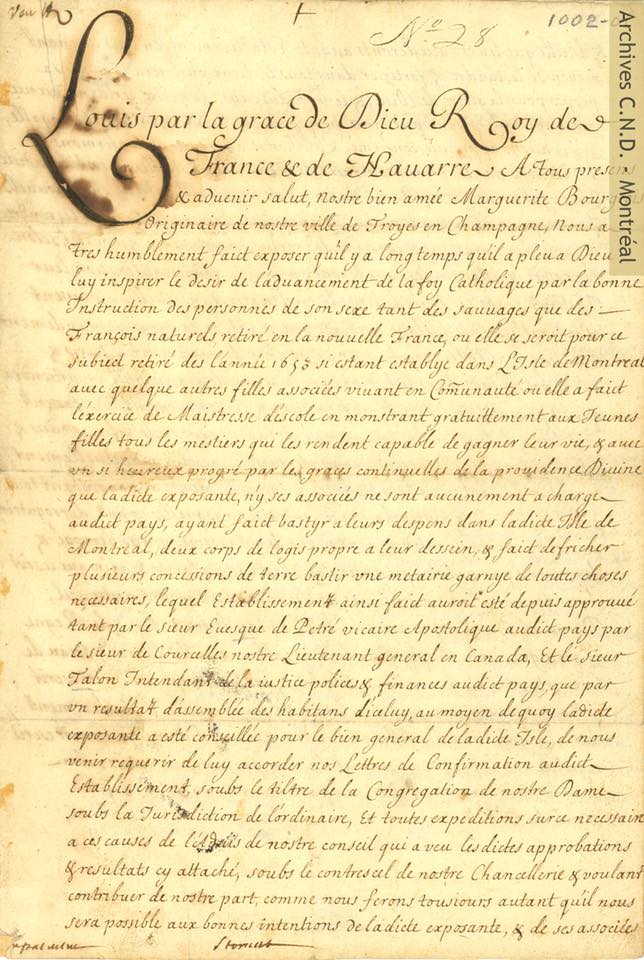 Archives C.N.D. Montréal
1002-
N.º 28
Louis par la grace de Dieu Roy de
France & de Nauarre A tous presens
& aduenir salut, nostre bien amée Marguerite Bourgeois
Originaire de nostre ville de Troyes en Champagne, Nous a
tres humblement faict exposer qu'il y a long temps qu'il a pleu a Dieu
luy inspirer le desir de laduancement de la foy Catholique par la bonne
Instruction des personnes de son sexe tant des sauuages que des
François naturels retiré en la nouuelle France, ou elle se seroit pour ce
subiect retiré des l'année 1653 si estant establye dans L'Isle de Montreal
auec quelque autres filles associées viuant en Cõmunauté ou elle a faict
l'exercice de Maistresse descole en monstrant gratuittement aux Jeunes
filles tous les mestiers qui les rendent capable de gagner leur vie, & auec
vn si heureux progré par les graces continuelles de la prouidence Diuine
que ladicte exposante, n'y ses associées ne sont aucunement a charge
audict pays, ayant faict bastyr a leurs despens dans ladicte Isle de
Montreal, deux corps de logis propre a leur dessein, & faict defricher
plusieurs concessions de terre bastir vne metairie garnye de toutes choses
necessaires, lequel Establissement ainsi faict auroit esté depuis approuué
tant par le sieur Euesque de Petré vicaire Apostolique audict pays par
le sieur de Courcelles nostre Lieutenant general en Canada, Et le Sieur
Talon Intendant de la iustice polices & finances audict pays, que par
vn resultat d'assemblée des habitans d'iceluy, au moyen de quoy ladicte
exposante a esté conseillée pour le bien general de ladicte Isle, de nous
venir requerir de luy accorder nos Lettres de Confirmation audict
Establissement, soubs le tiltre de la Congregation de nostre Dame
soubs la Jurisdiction de l'ordinaire, Et toutes expeditions sur ce necessaire
a ces causes de l'Aduis de nostre conseil qui a veu les dictes approbations
& resultats cy attaché, soubs le contrescel de nostre Chancellerie & voulant
contribuer de nostre part, comme nous ferons tousiours autant qu'il nous
sera possible aux bonnes intentions de ladicte exposante, & de ses associées